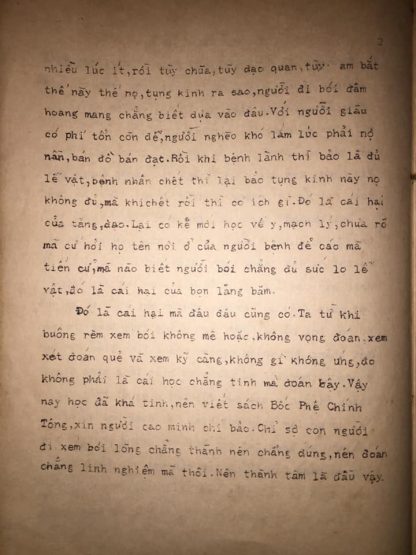 2
nhiều lúc ít,rồi tùy chùa,tùy đạo quan,tùy am bắt
thế này thế nọ,tụng kinh ra sao,người đi bói đâm
hoang mang chẳng biết dựa vào đâu.Với người giàu
có phí tổn còn dể,người nghèo khó lắm lúc phải nợ
nần,bán đồ bán đạt.Rồi khi bệnh lành thì bảo là đủ
lể vật,bệnh nhân chết thì lại bảo tụng kinh này nọ
không đủ,mà khi chết rồi thì có ích gì.Đó là cái hại
của tăng,đạo.Lại có kẻ mới học về y,mạch lý,chưa rõ
mà cứ hỏi họ tên nơi ở của người bệnh để các mã
tiến cử,mà nào biết người bói chẳng đủ sức lo lể
vật,đó là cái hại của bọn lăng băm.
Đó là cái hại mà đâu đâu cũng có.Ta từ khi
buông rèm xem bói không mê hoặc,không vọng đoan.xem
xét đoán quẻ và xem kỹ càng,không gì không ứng,đo
không phải là cái học chẳng tinh mà đoán bậy.Vậy
nay học đã khá tinh,nên viết sách Bốc Phệ Chính
Tông,xin người cao minh chỉ bảo.Chỉ sợ con người
đi xem bói lòng chẳng thành nên chẳng đúng,nên đoán
chẳng linh nghiệm mà thôi.Nên thành tâm là đầu vậy.